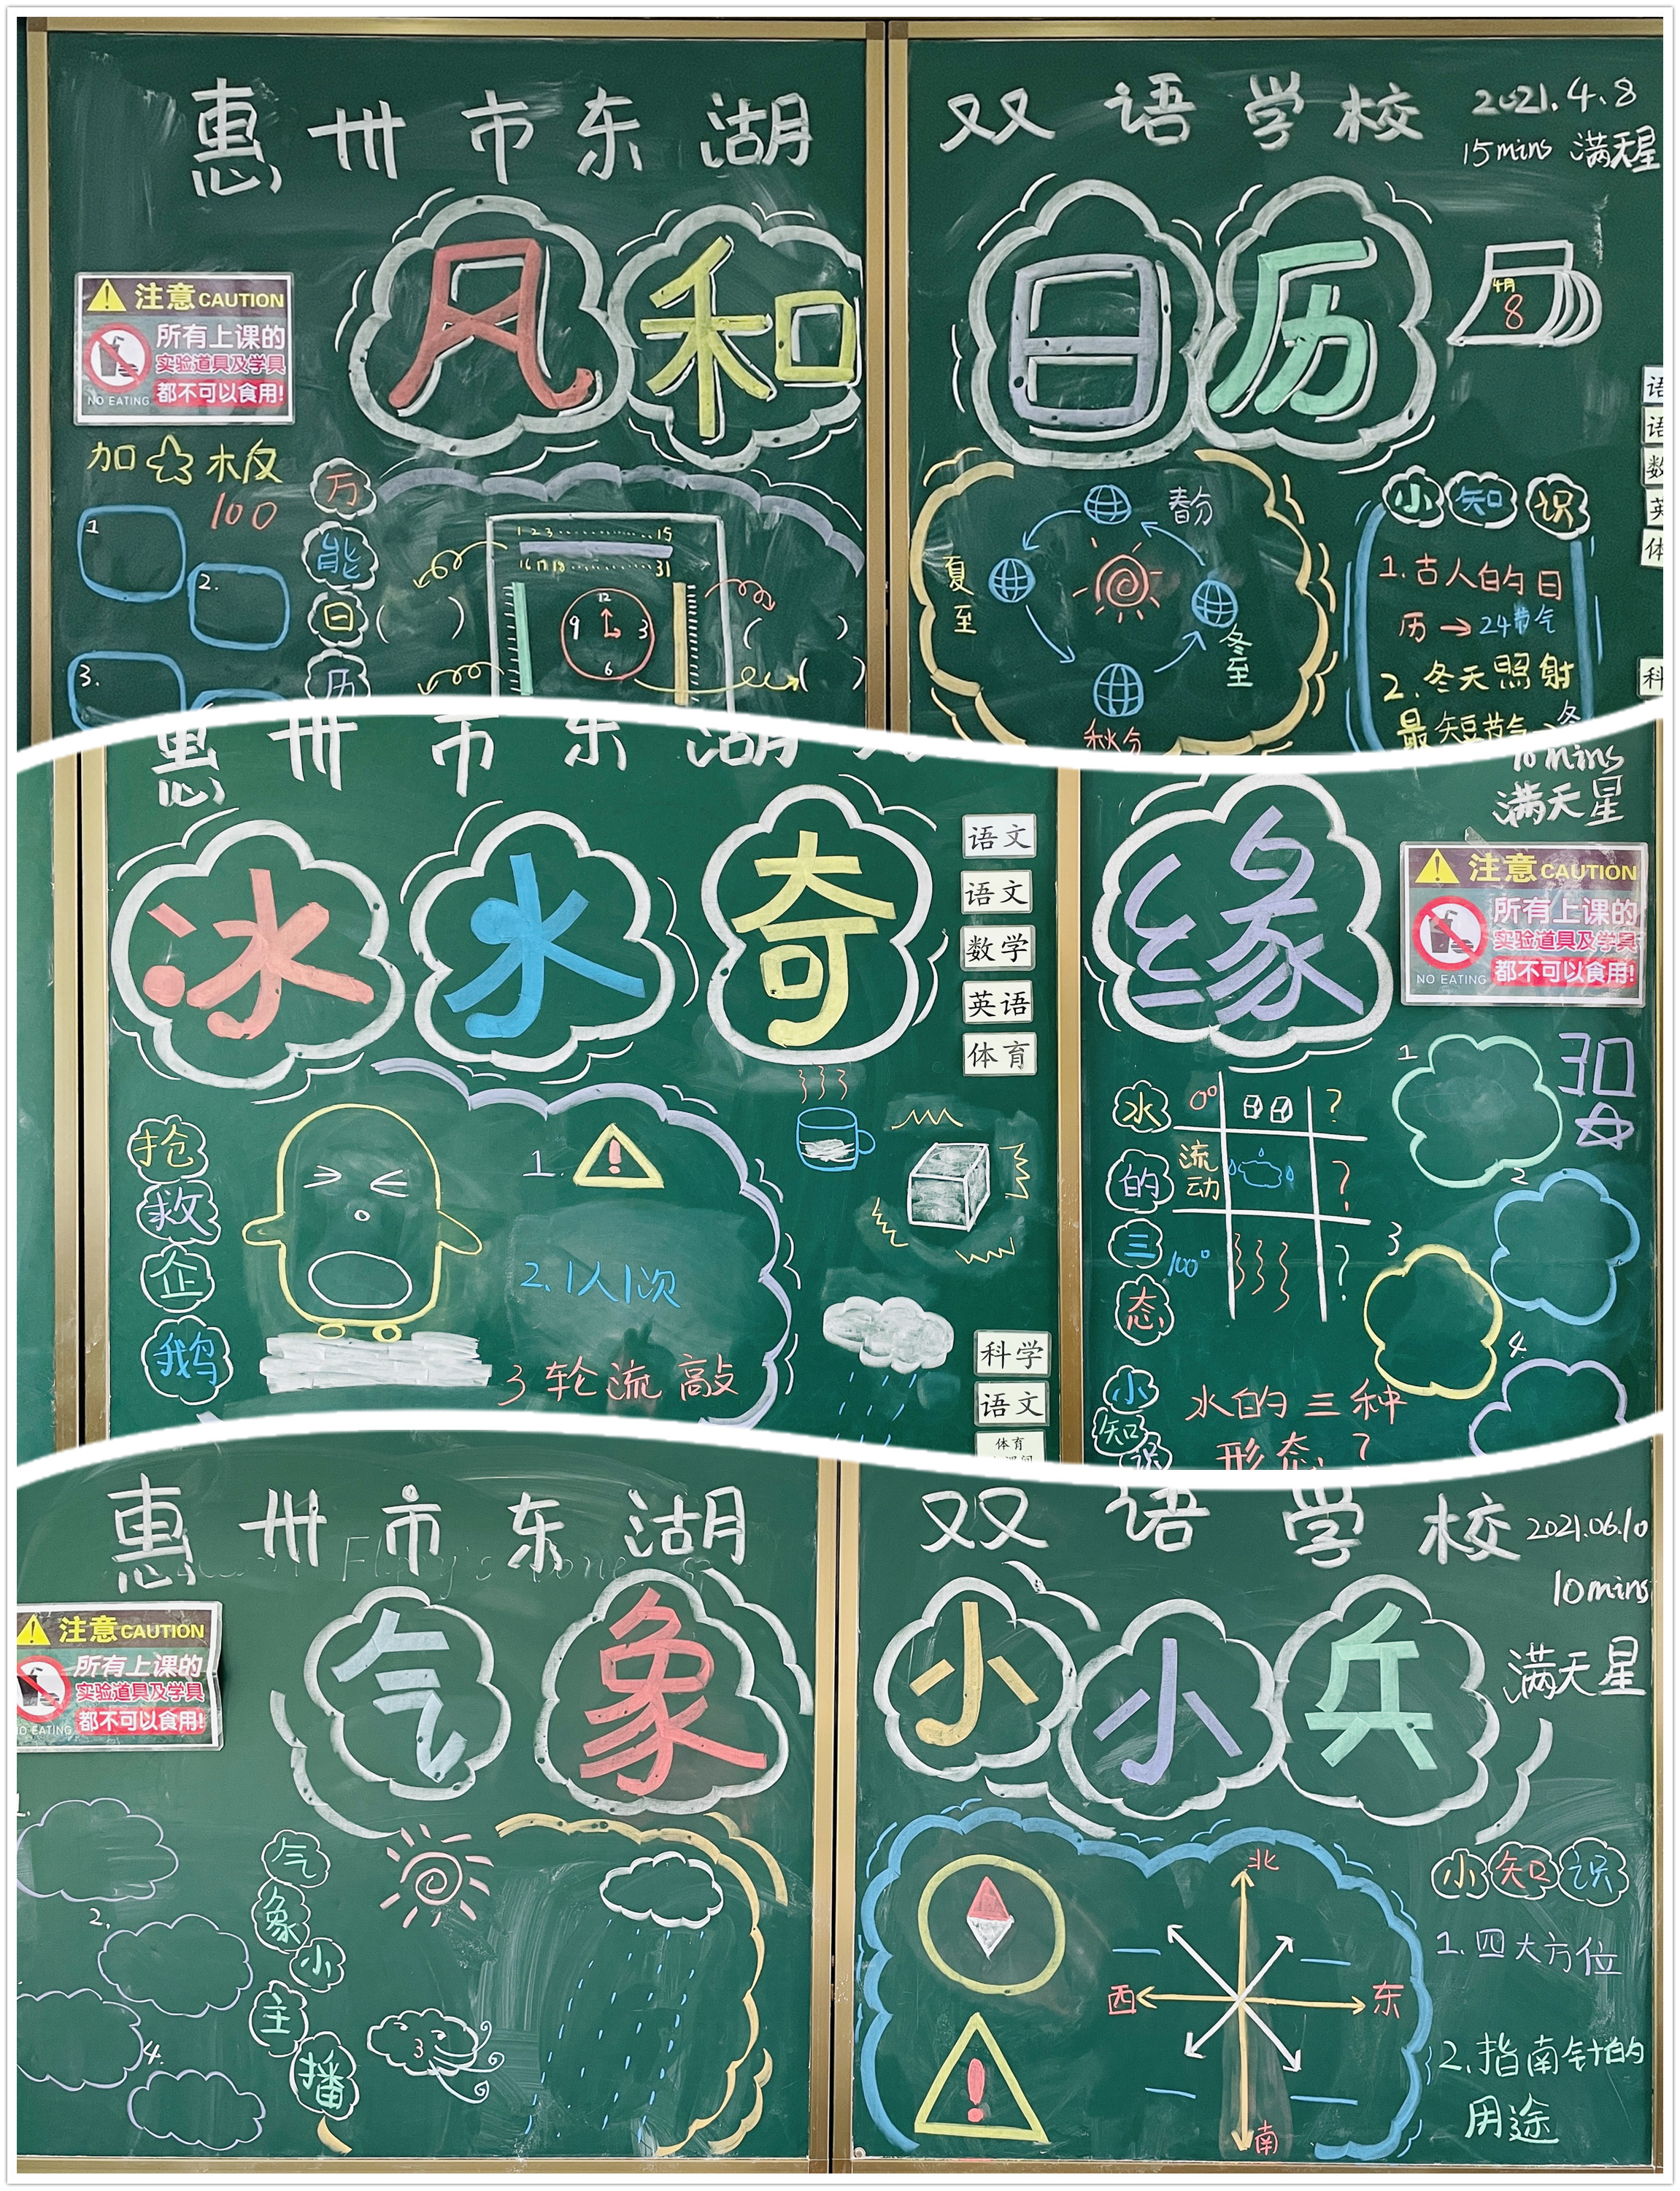 惠州市东湖
双语学校
2021.4.8
15mins 满天星
风和
日历
4月
8
注意CAUTION
所有上课的
实验道具及学具
都不可以食用!
NO EATING
加☆板
100
1
2.
3.
万能日历
1 2 3 15
16 17 18 31
12
9 3
6
( )
( )
( )
春分
夏至
冬至
秋分
小知识
1.古人的日
历→24节气
2.冬天照射
最短节气→冬
语
语
数
英
体
科
惠州市东湖
10mins
满天星
冰水奇
缘
语文
语文
数学
英语
体育
科学
语文
体育
注意CAUTION
所有上课的
实验道具及学具
都不可以食用!
NO EATING
抢救企鹅
1. !
2.1人1次
3轮流敲
水的三态
0° ?
流动 ?
100° ?
加☆
1
2
3
4.
小知识
水的三种
形态?
惠州市东湖
双语学校
2021.06.10
10mins
满天星
气象
小小兵
注意CAUTION
所有上课的
实验道具及学具
都不可以食用!
NO EATING
2.
4.
气象小主播
北
西 东
南
!
小知识
1.四大方位
2.指南针的
用途